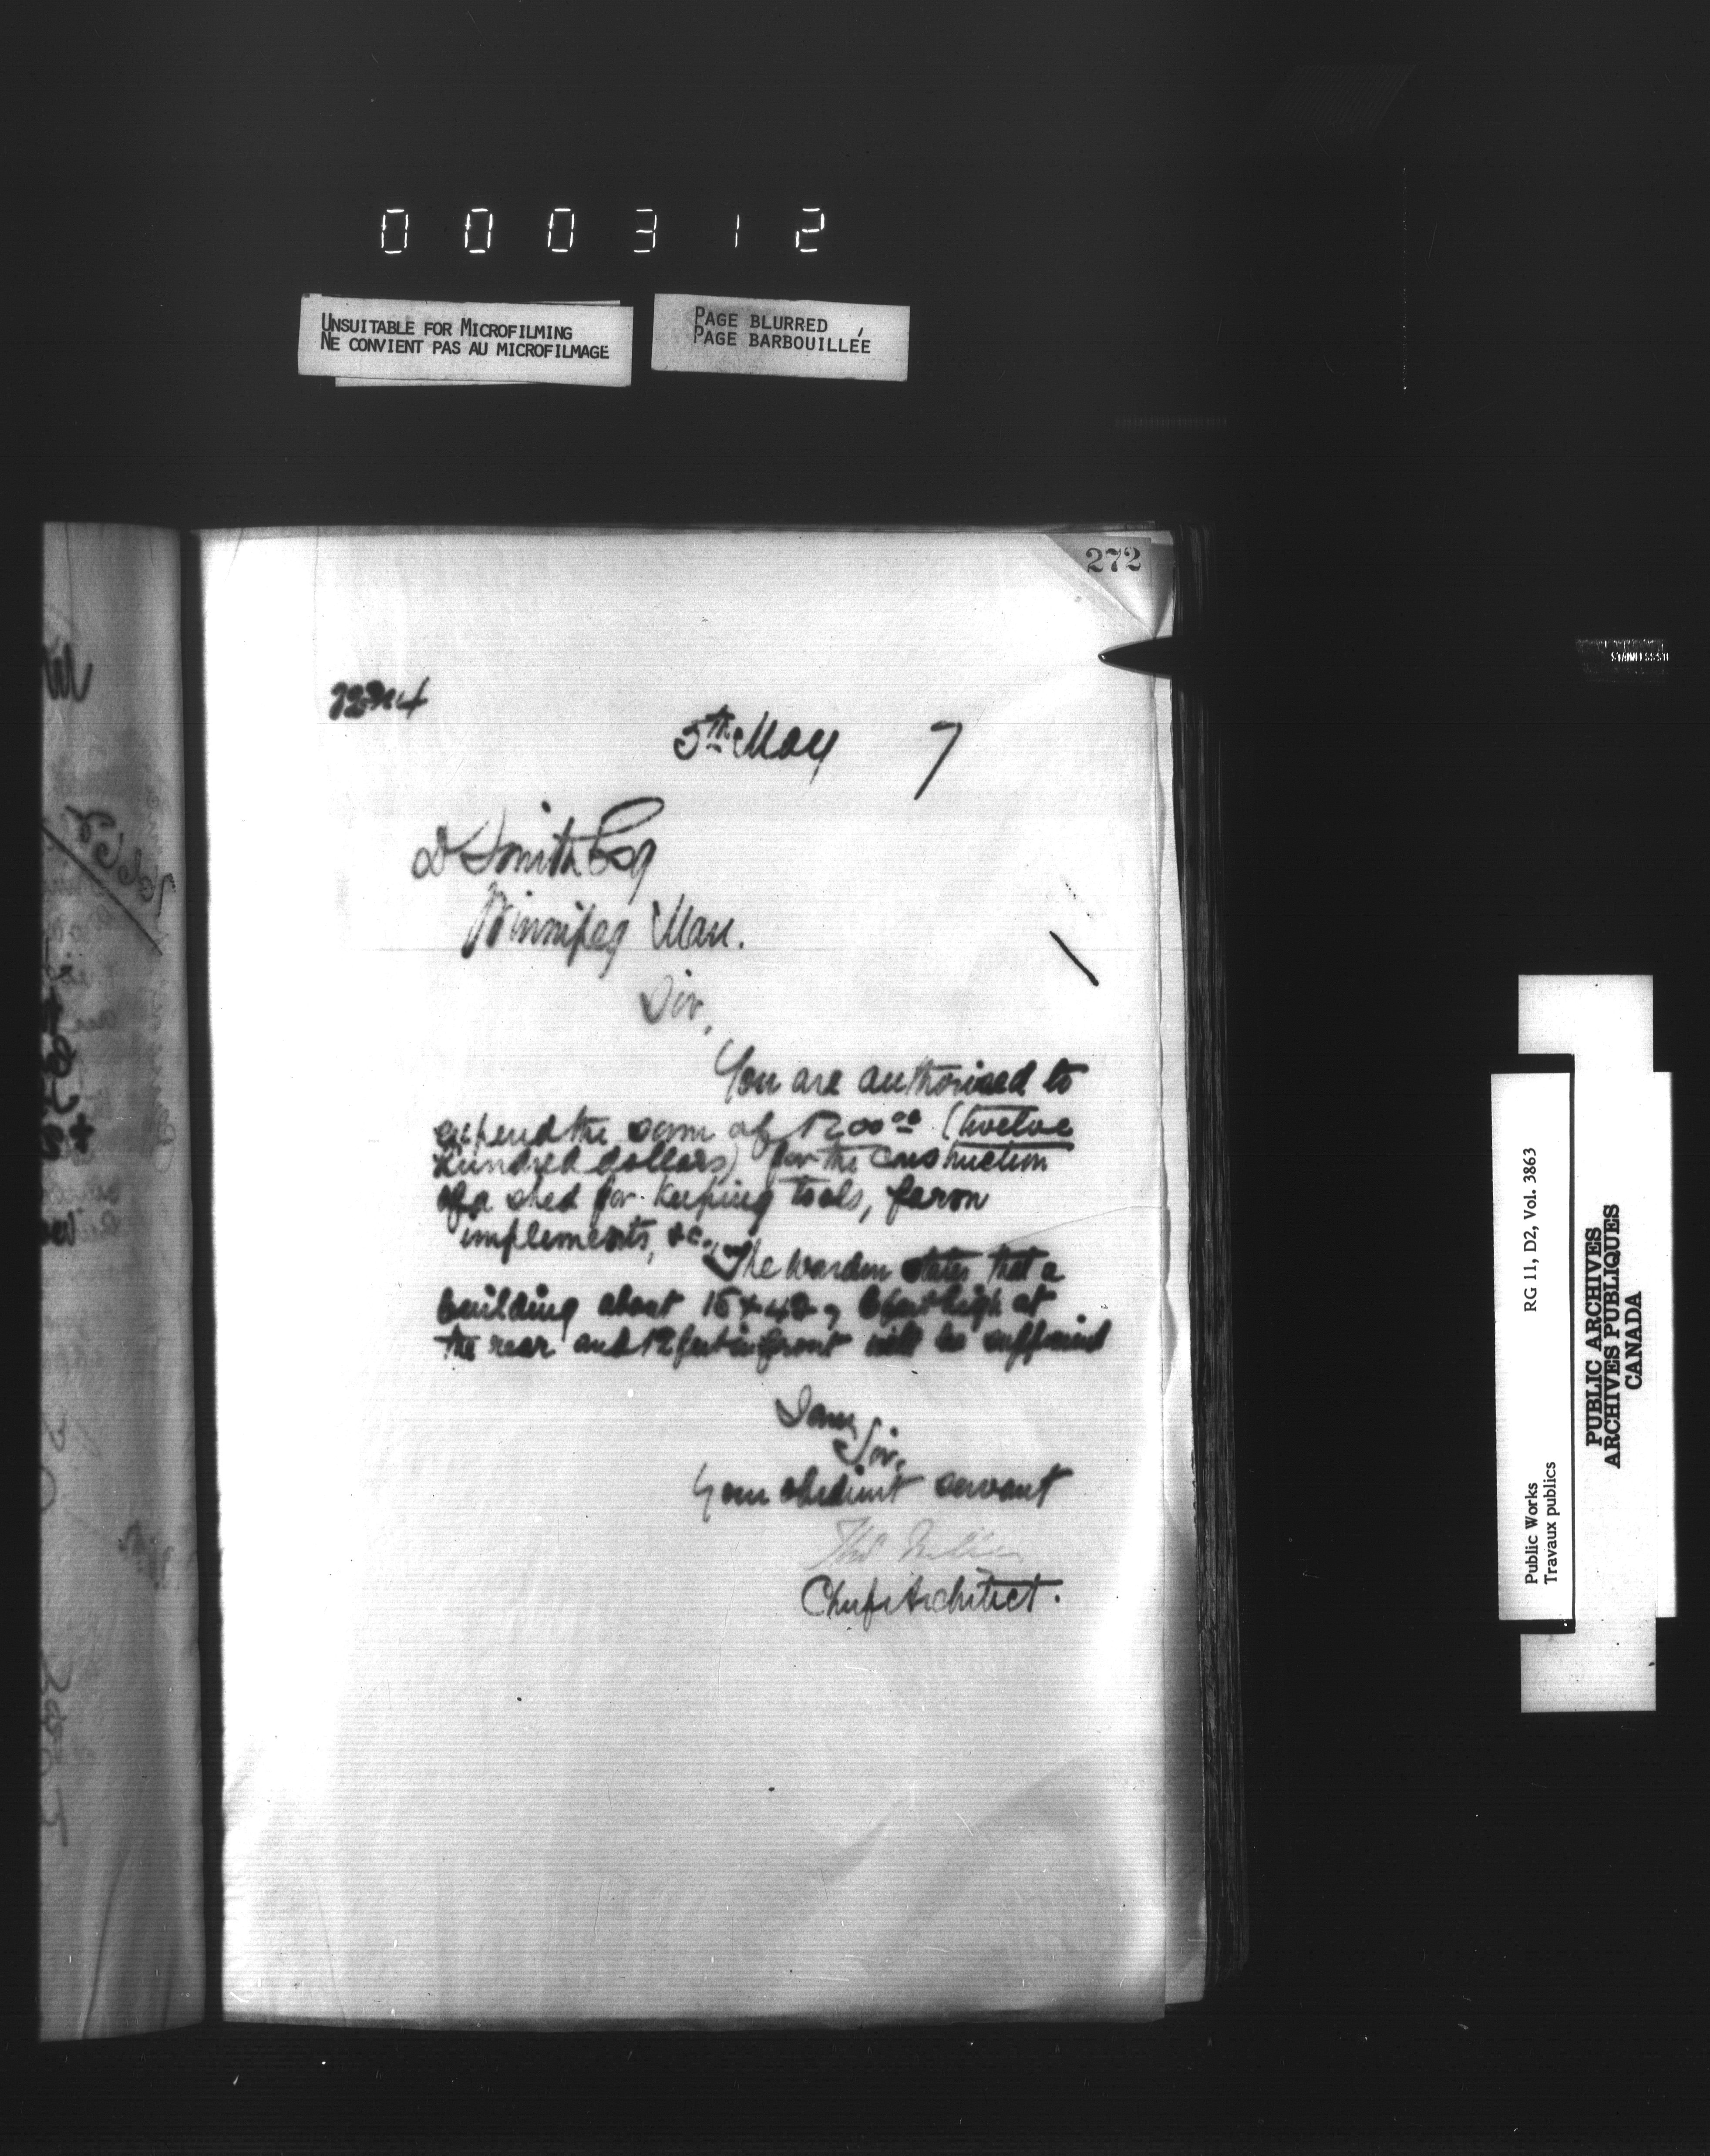 000312
UNSUITABLE FOR MICROFILMING
NE CONVIENT PAS AU MICROFILMAGE
PAGE BLURRED
PAGE BARBOUILLÉE
272
5th May 7
D Smith Esq
Winnipeg Man.
Sir,
You are authorised to
expend the sum of 1200 00 (twelve
hundred dollars) for the construction
of a shed for keeping tools, farm
implements, &c.
The warden states that a
building about 15 x 40, 6 feet high at
the rear and 12 feet in front will be sufficient
I am
Sir,
Your obedient servant
Thos Fuller
Chief Architect.
Public Works
Travaux publics
RG 11, D2, Vol. 3863
PUBLIC ARCHIVES
ARCHIVES PUBLIQUES
CANADA